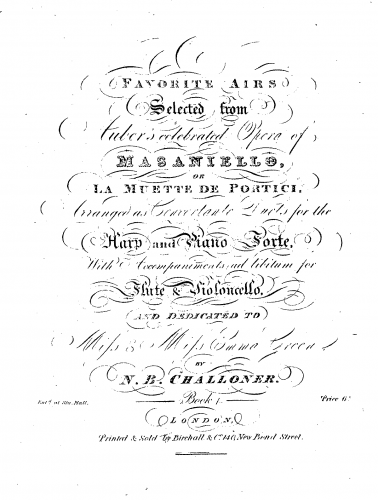 FAVORITE AIRS
Selected from
Auber's celebrated Opera of
MASANIELLO,
OR
LA MUETTE DE PORTICI,
Arranged as Concertante Duets for the
Harp and Piano Forte,
With Accompaniments ad libitum for
Flute & Violoncello,
AND DEDICATED TO
Miss & Miss Emma Green
BY
N. B. CHALLONER.
Entd. at Sta. Hall.
Book 1
Price 6s
LONDON,
Printed & Sold by Birchall & Co. 140, New Bond Street.